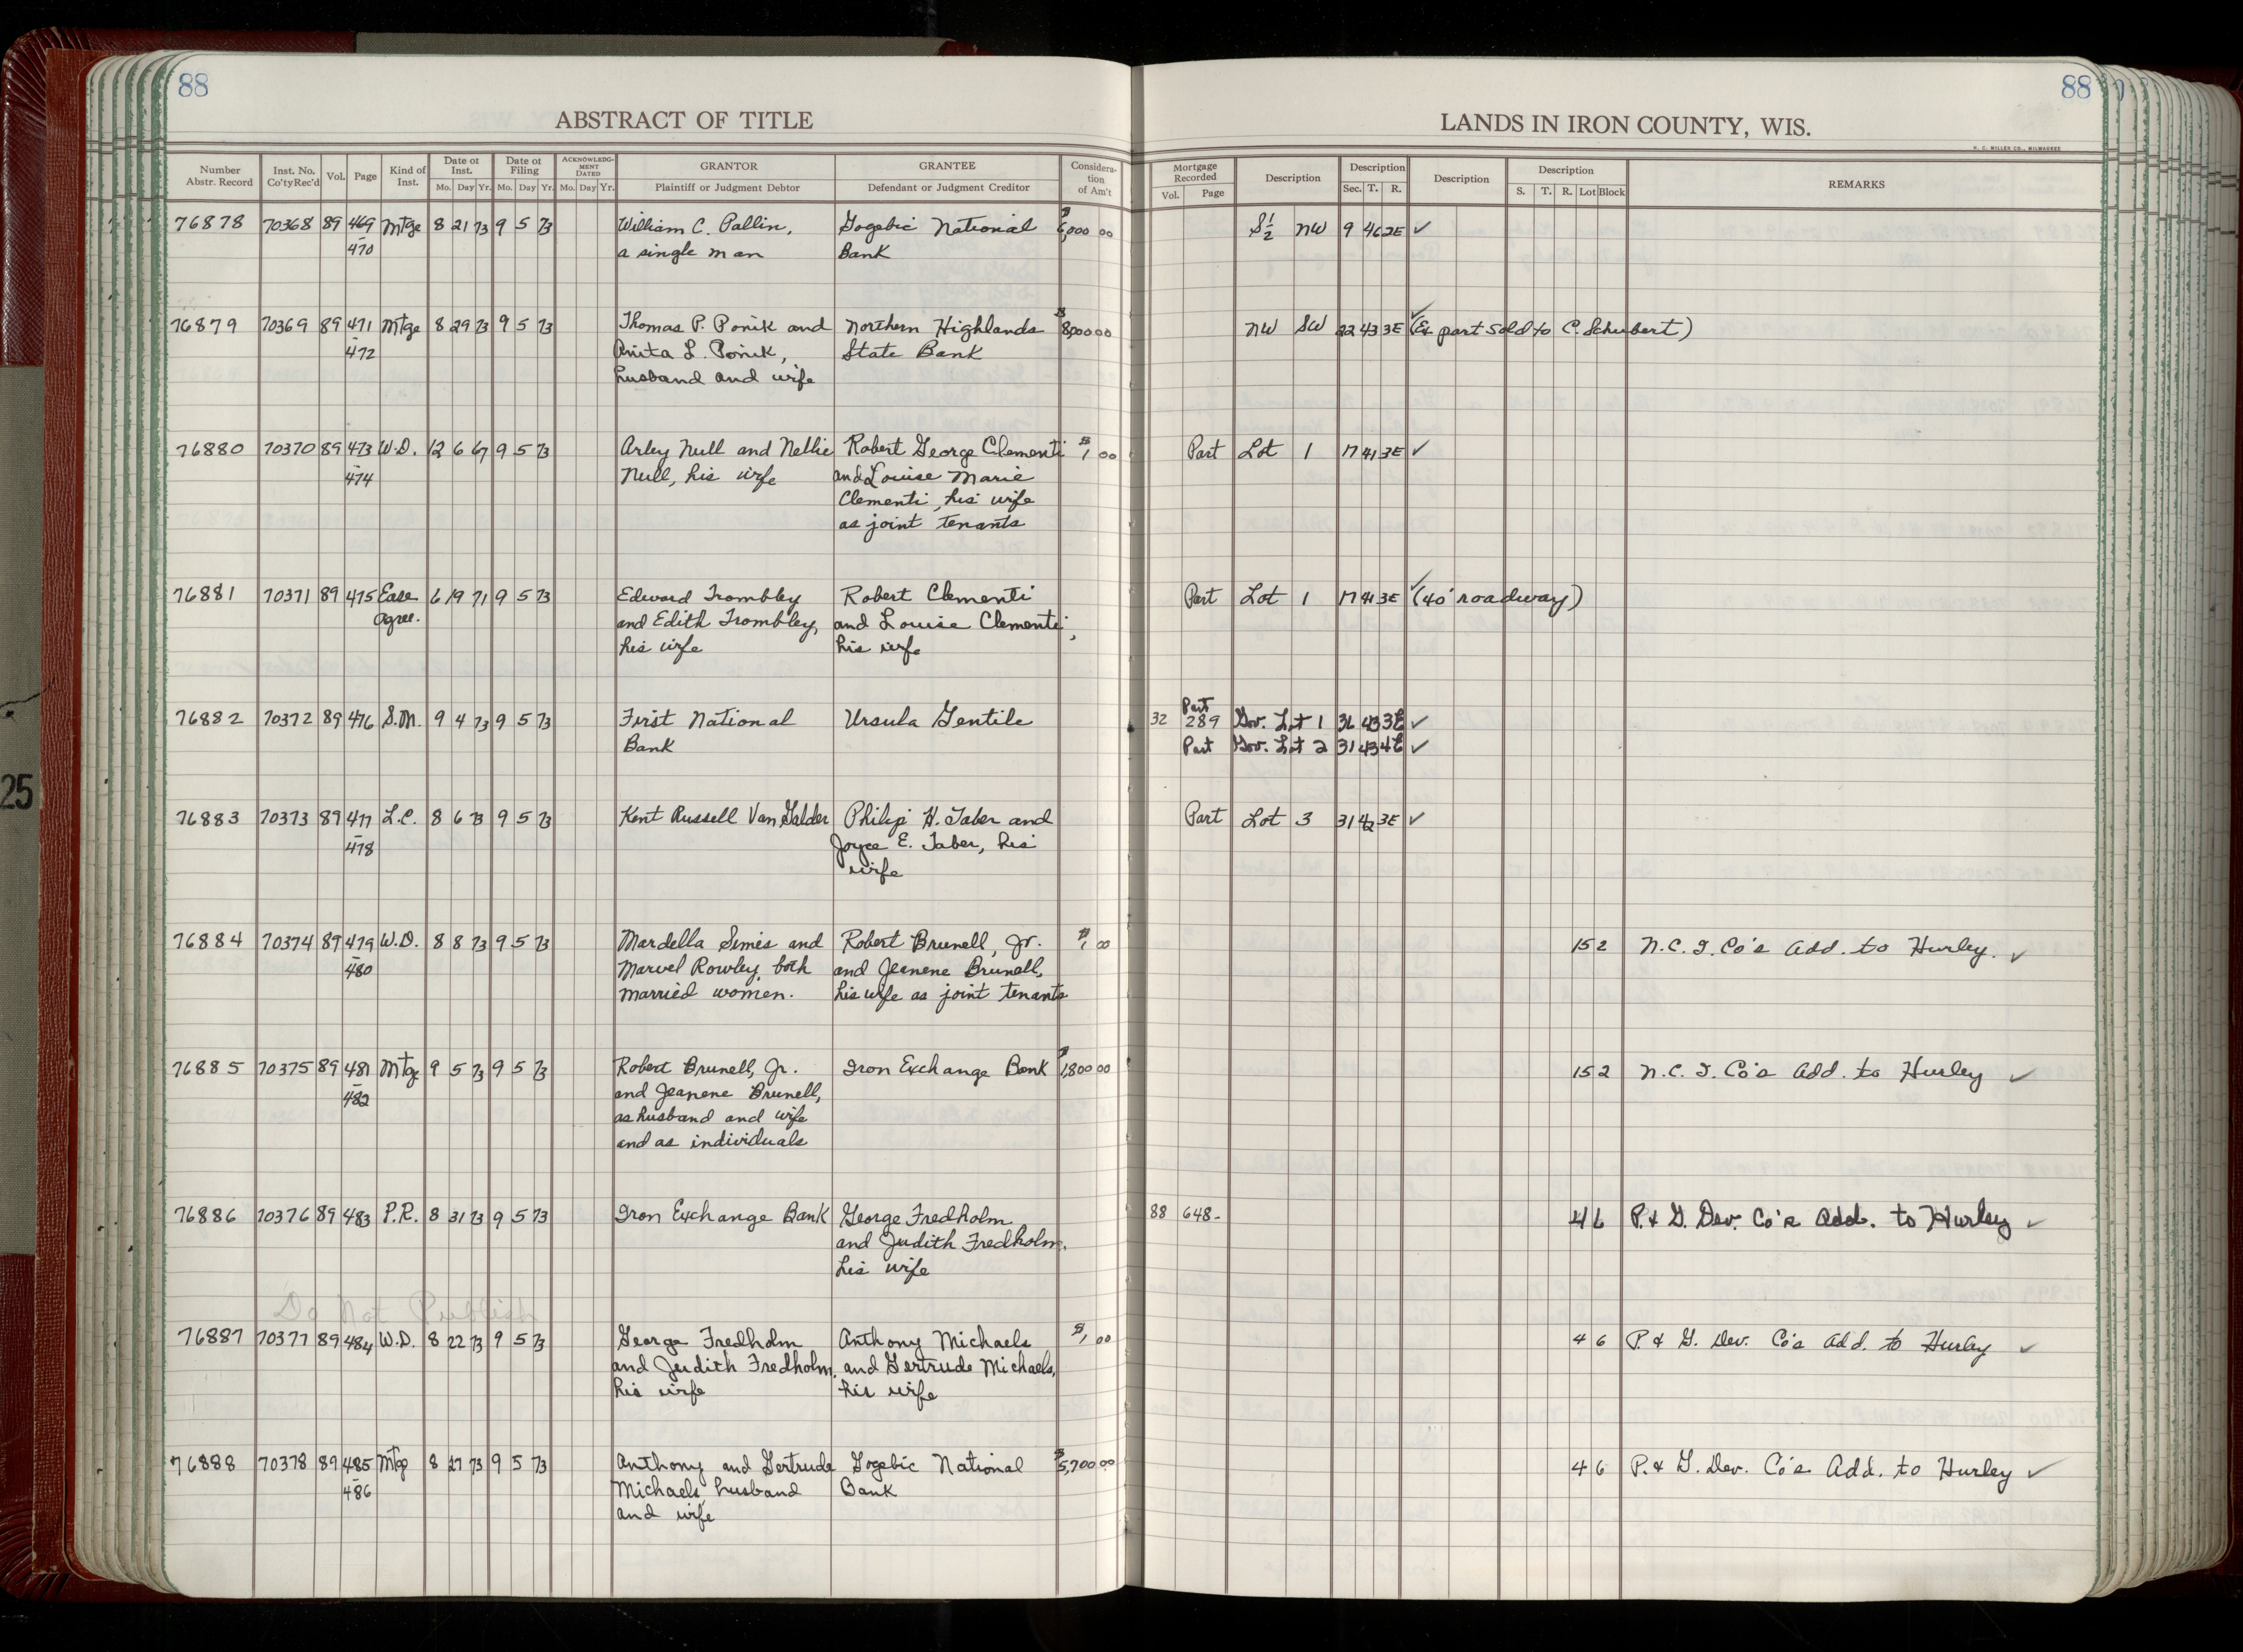 88
88
ABSTRACT OF TITLE
LANDS IN IRON COUNTY, WIS.
H. C. MILLER CO., MILWAUKEE
Number Abstr. Record | Inst. No. Co'ty Rec'd | Vol. | Page | Kind of Inst. | Date of Inst. Mo. Day Yr. | Date of Filing Mo. Day Yr. | ACKNOWLEDGMENT DATED Mo. Day Yr. | GRANTOR Plaintiff or Judgment Debtor | GRANTEE Defendant or Judgment Creditor | Consideration of Am't | Mortgage Recorded Vol. Page | Description | Description Sec. T. R. | Description | Description S. T. R. Lot Block | REMARKS
76878 70368 89 469 Mtge 8 21 73 9 5 73 William C. Pallin, Gogebic National $6,000 00 S½ NW 9 46 2E ✓
470 a single man Bank
76879 70369 89 471 Mtge 8 29 73 9 5 73 Thomas P. Ponik and Northern Highlands $8000 00 NW SW 22 43 3E ✓ (Ex part sold to C. Schubert)
472 Anita L. Ponik, State Bank
husband and wife
76880 70370 89 473 W.D. 12 6 67 9 5 73 Arley Null and Nellie Robert George Clementi $1 00 Part Lot 1 17 41 3E ✓
474 Null, his wife and Louise Marie
Clementi, his wife
as joint tenants
76881 70371 89 475 Ease 6 19 71 9 5 73 Edward Trombley Robert Clementi Part Lot 1 17 41 3E ✓ (40' roadway)
agree. and Edith Trombley, and Louise Clementi,
his wife his wife
Part
76882 70372 89 476 S.M. 9 4 73 9 5 73 First National Ursula Gentile 32 289 Gov. Lot 1 36 43 3E ✓
Bank Part Gov. Lot 2 31 43 4E ✓
76883 70373 89 477 L.C. 8 6 73 9 5 73 Kent Russell Van Galder Philip H. Taber and Part Lot 3 31 42 3E ✓
478 Joyce E. Taber, his
wife
76884 70374 89 479 W.D. 8 8 73 9 5 73 Mardella Simes and Robert Brunell, Jr. $1 00 15 2 N.C.I. Co's Add. to Hurley. ✓
480 Marvel Rowley, both and Jeanene Brunell,
married women. his wife as joint tenants
76885 70375 89 481 Mtg 9 5 73 9 5 73 Robert Brunell, Jr. Iron Exchange Bank $1,800 00 15 2 N.C.I. Co's Add. to Hurley ✓
482 and Jeanene Brunell,
as husband and wife
and as individuals
76886 70376 89 483 P.R. 8 31 73 9 5 73 Iron Exchange Bank George Fredholm 88 648- 4 6 P. & G. Dev. Co's Add. to Hurley ✓
and Judith Fredholm,
his wife
Do Not Publish
76887 70377 89 484 W.D. 8 22 73 9 5 73 George Fredholm Anthony Michaels $1 00 4 6 P. & G. Dev. Co's Add. to Hurley ✓
and Judith Fredholm, and Gertrude Michaels,
his wife his wife
76888 70378 89 485 Mtge 8 27 73 9 5 73 Anthony and Gertrude Gogebic National $5,700 00 4 6 P. & G. Dev. Co's Add. to Hurley ✓
486 Michaels, husband Bank
and wife
25